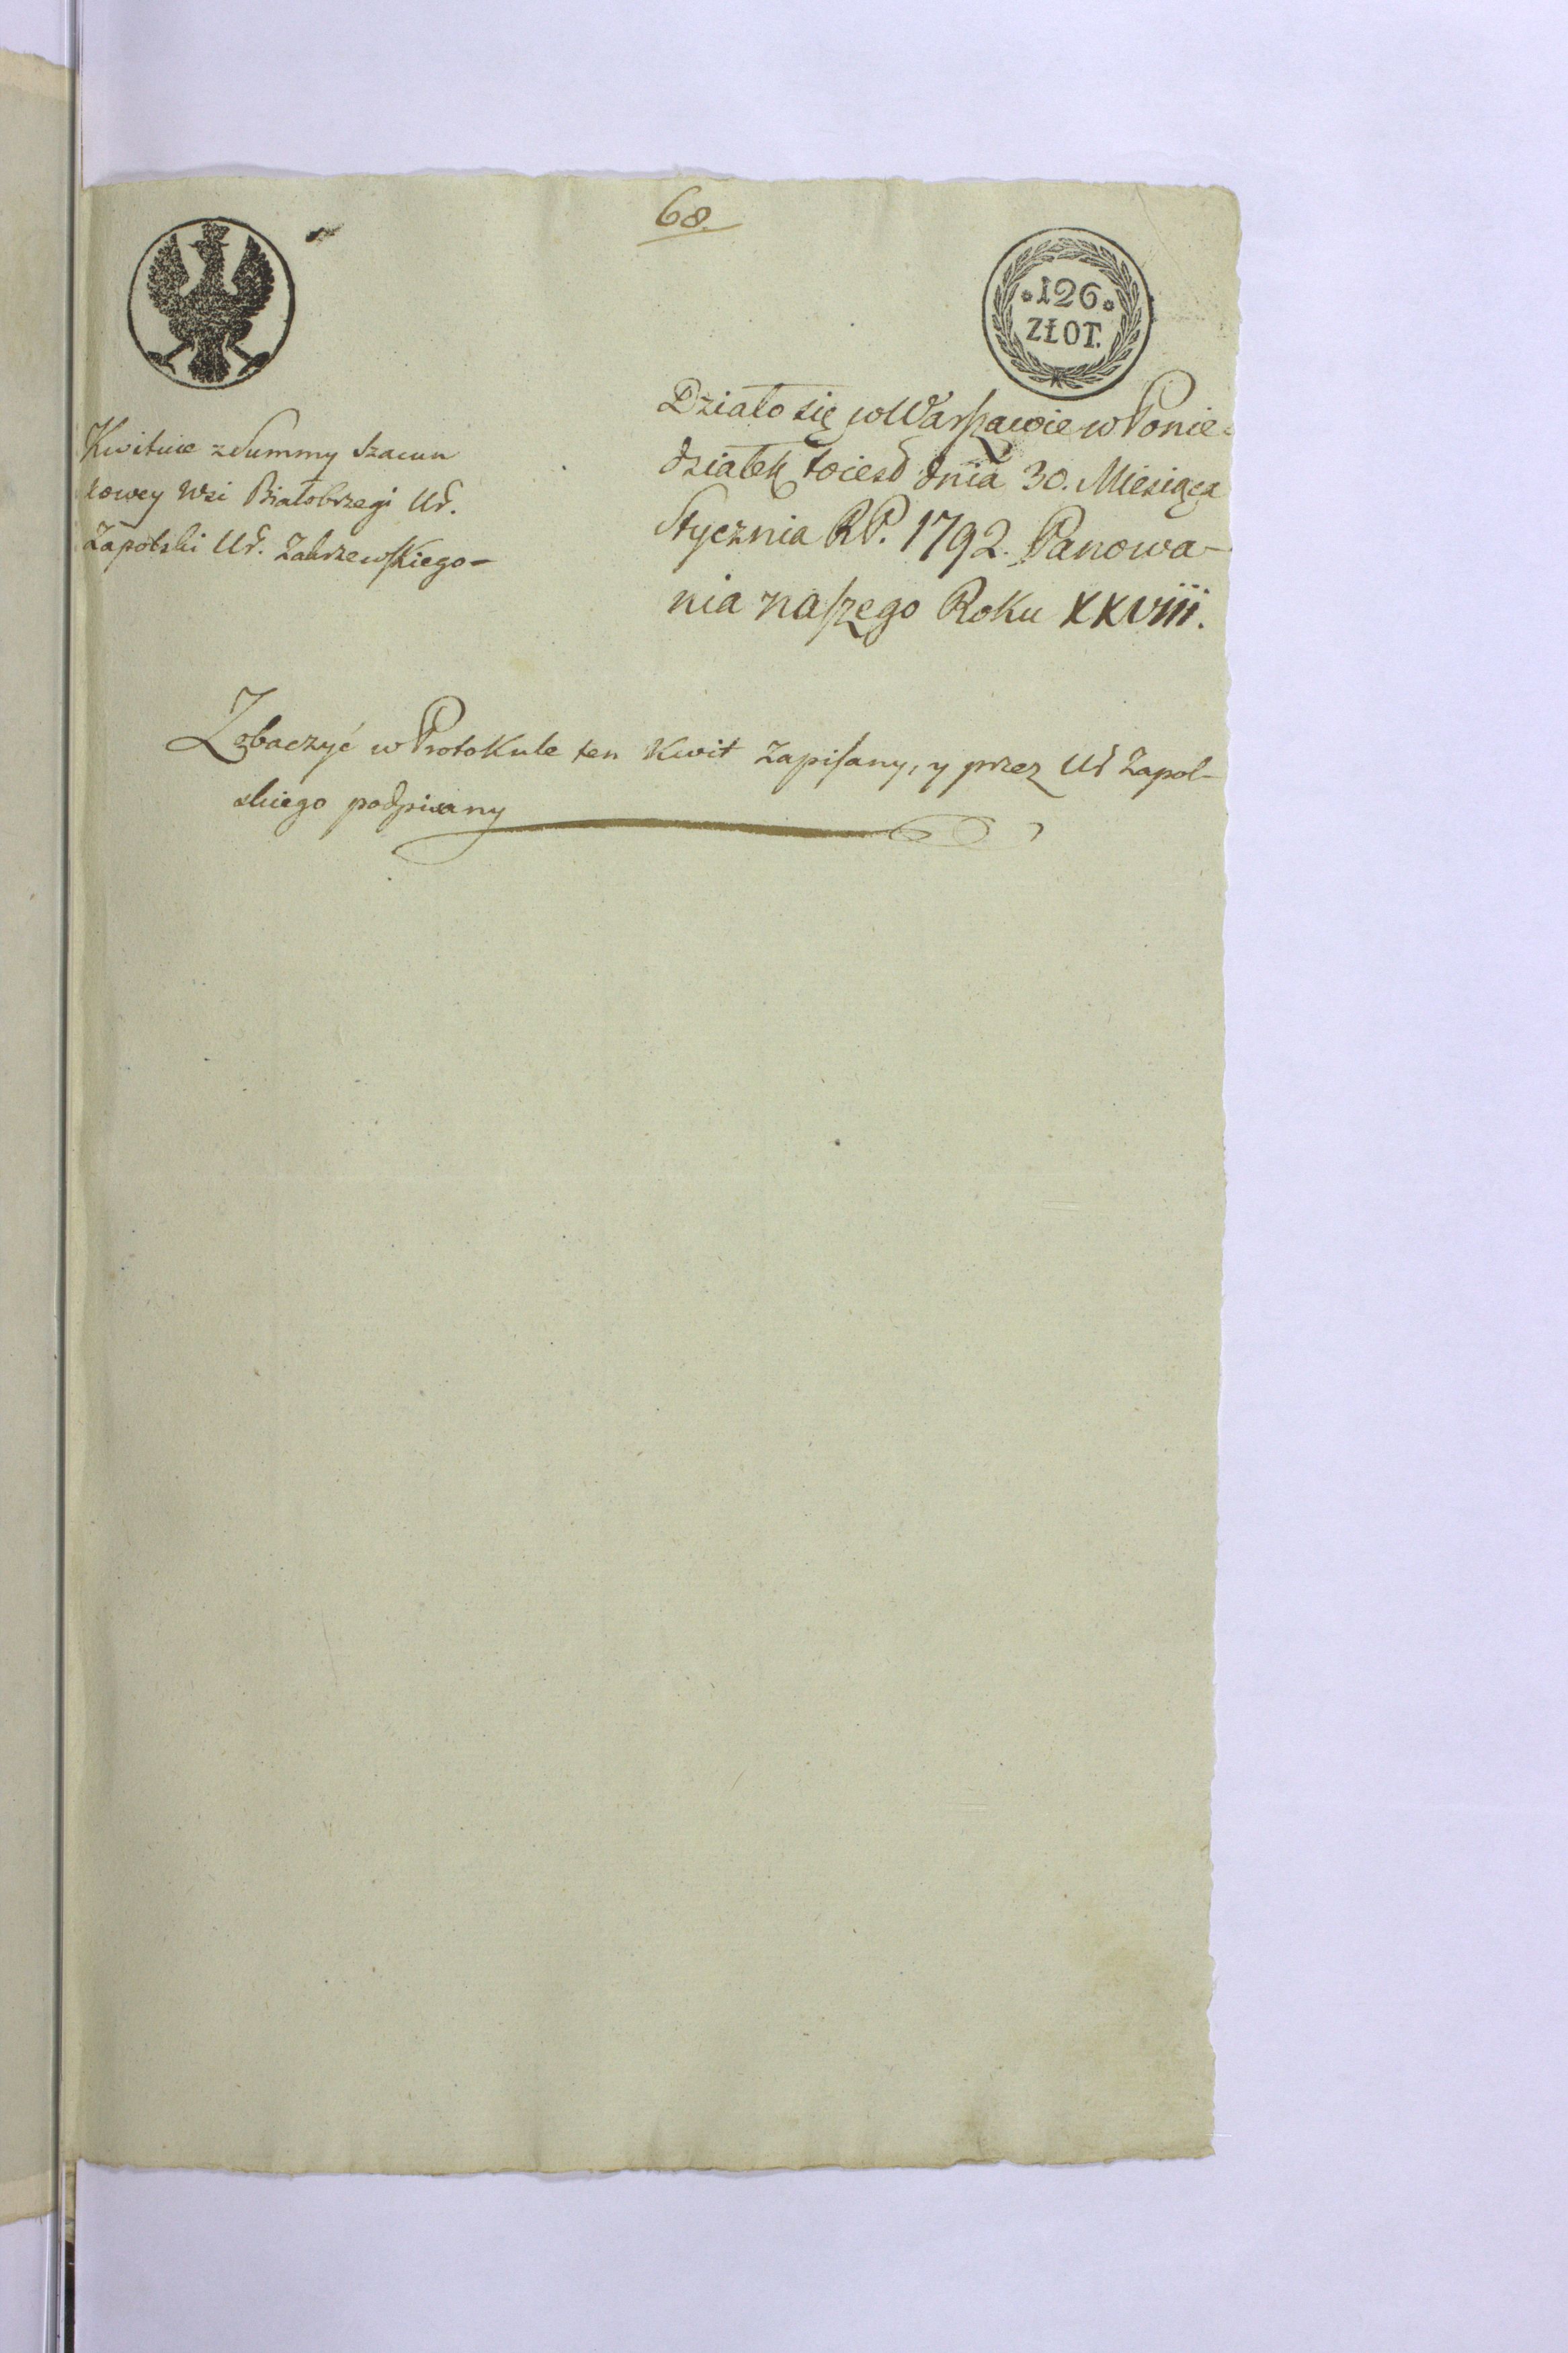 68.
126
ZŁOT.
Kwituie z Summy Szacun
kowey Wsi Białobrzegi Ur.
Zapolski Ur. Zakrzewskiego
Działo się w Warszawie w Ponie-
działek toiest dnia 30. Miesiąca
Stycznia RP. 1792. Panowa-
nia naszego Roku XXVIII.
Zobaczyć w Protokule ten Kwit zapisany, y przez Ur Zapol-
skiego podpisany